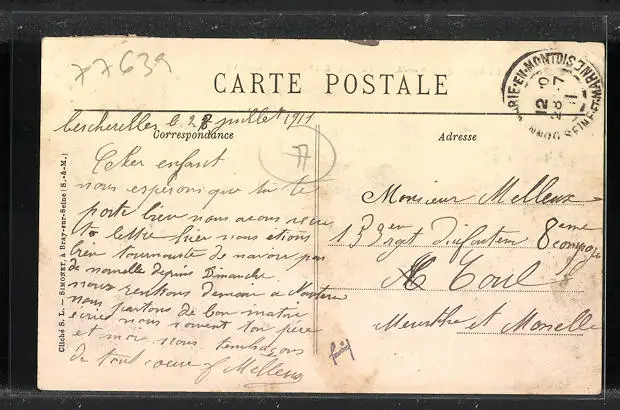 77639
CARTE POSTALE
Correspondance
Adresse
le 28 juillet 1911
77
Cher enfant
nous espérons que tu te
porte bien nous avons reçu
ta lettre hier nous étions
bien tourmenté de n'avoir pas
de nouvelle depuis Dimanche
nous rentrons demain a
nous partons de bon matin
écrie nous souvent ton pere
et moi nous t'embrassons
de tout coeur
Monsieur Melleux
infanterie 8eme
a Toul
Meurthe et Moselle
DONNEMARIE-EN-MONTOIS
SEINE-ET-MARNE
28 - 7
11
Cliché S. L. — SIMONET, à Bray-sur-Seine (S.-&-M.)